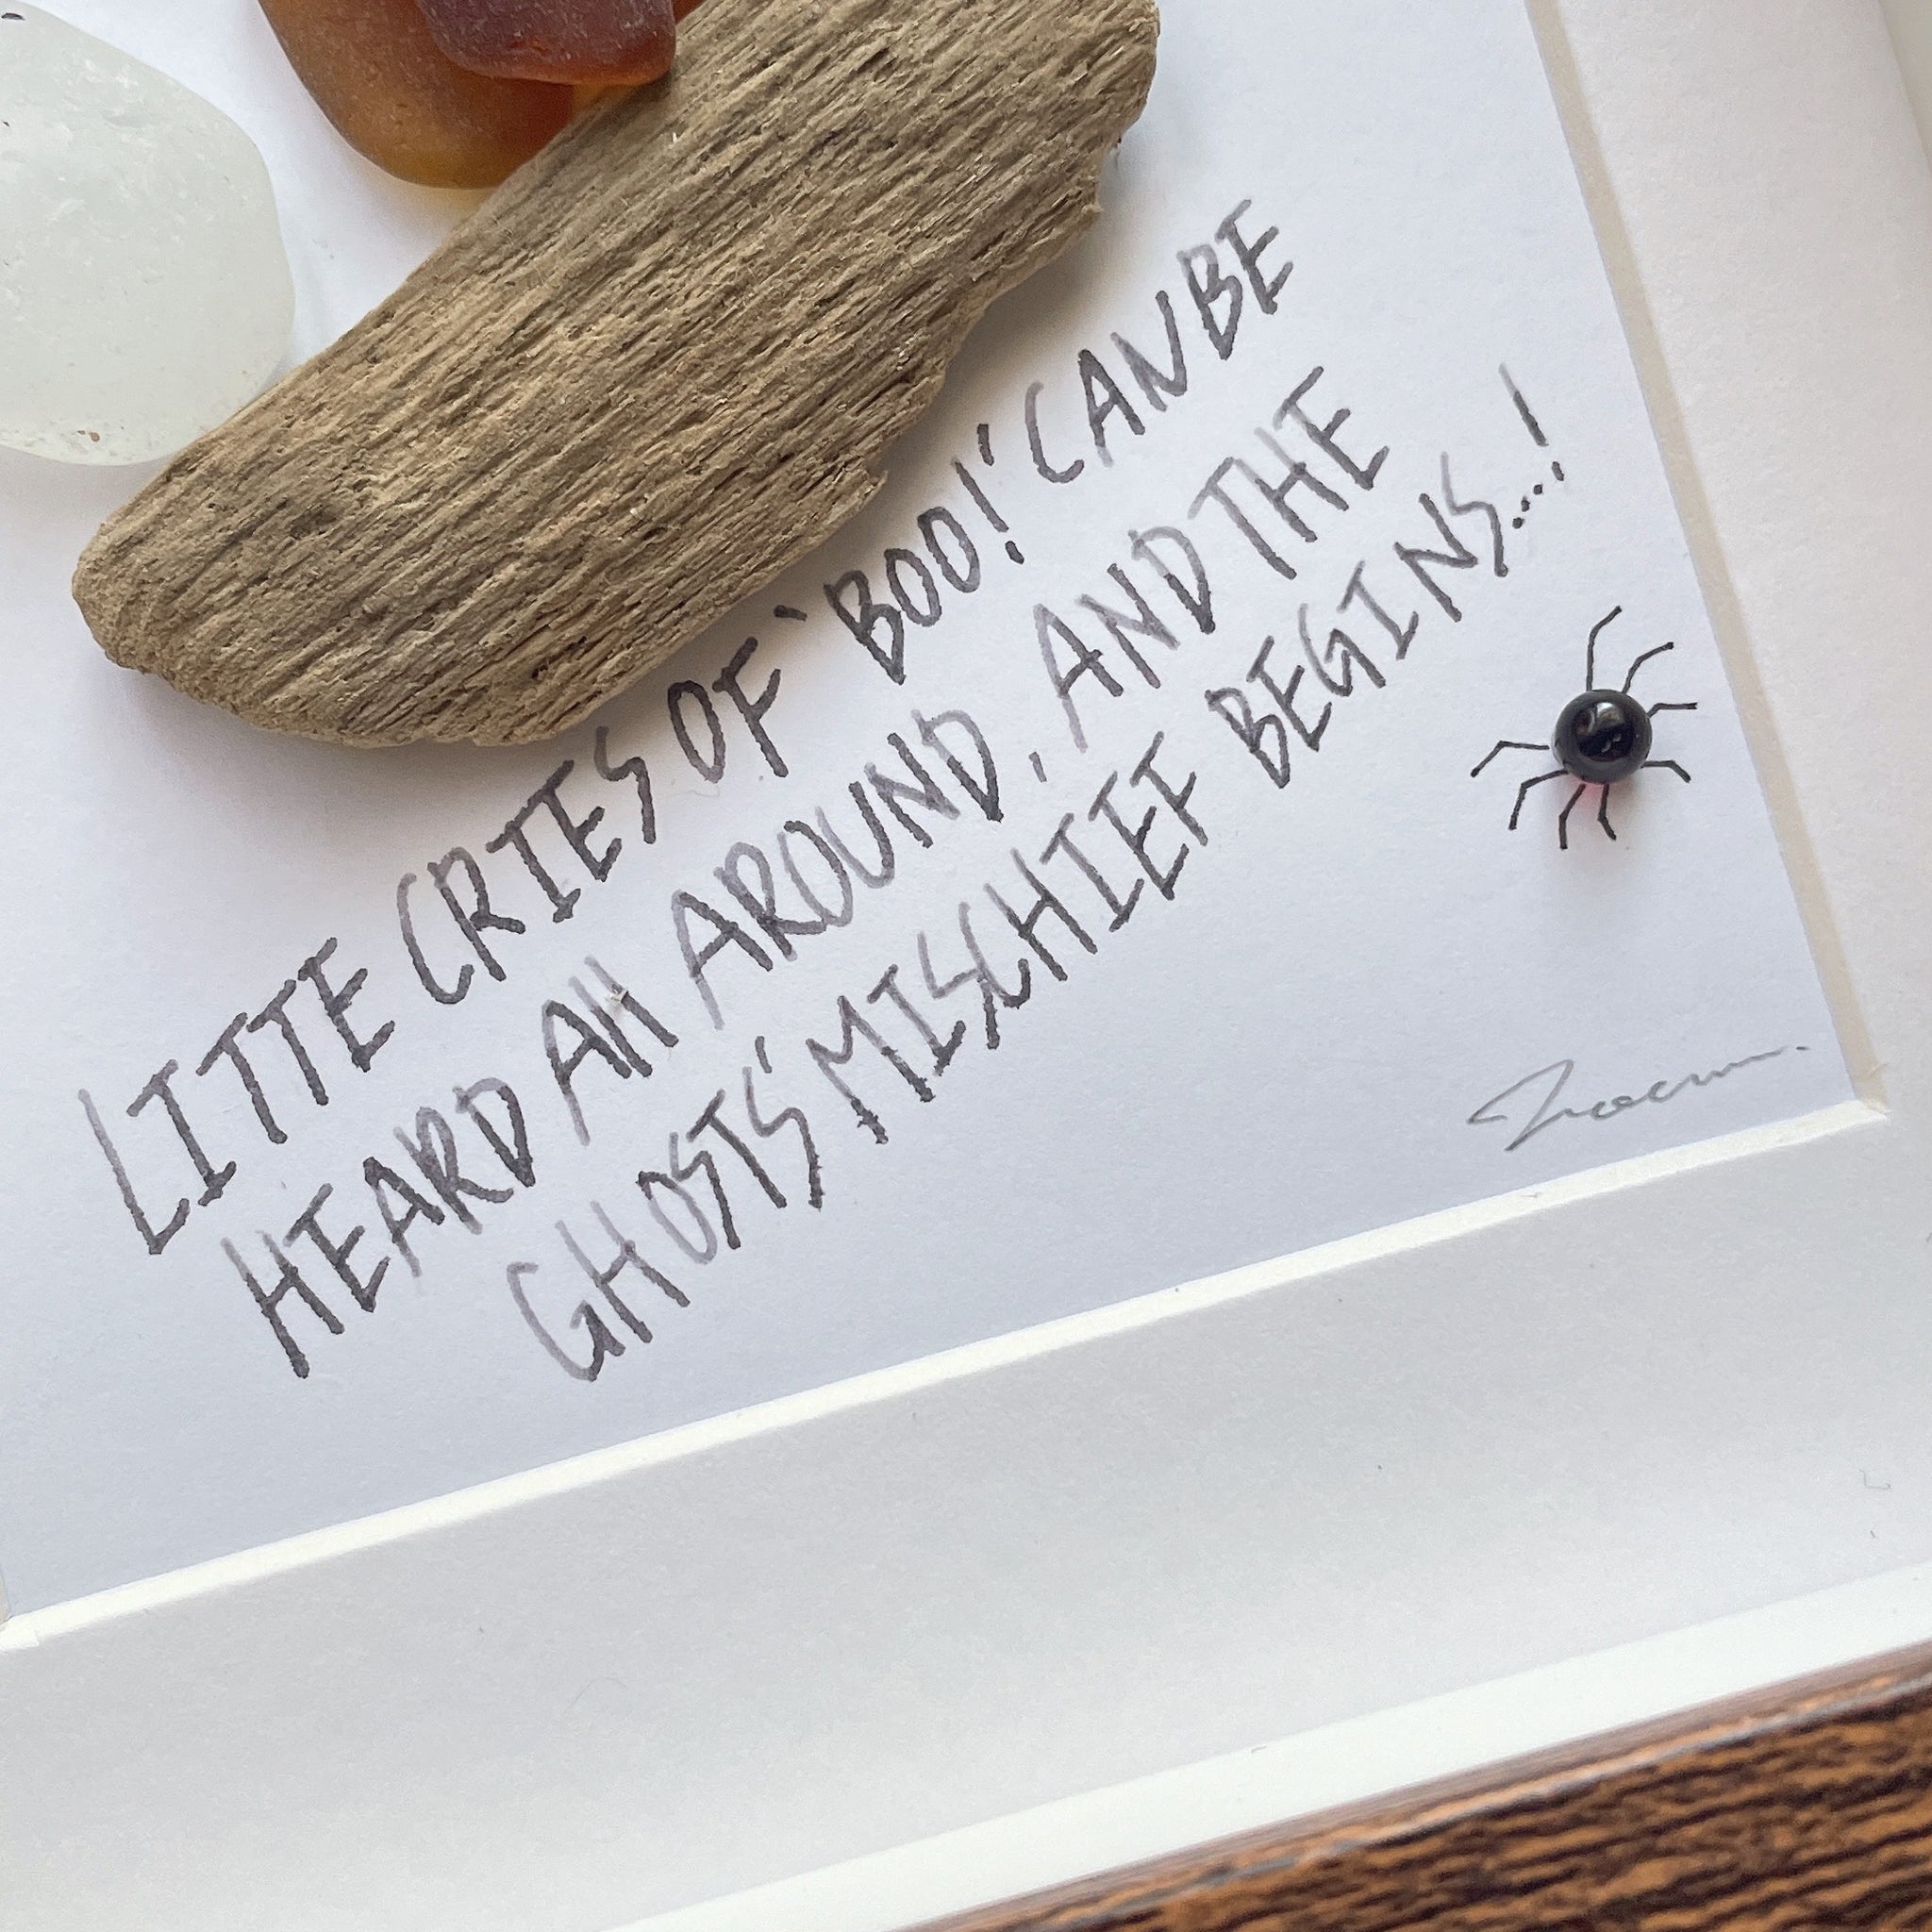 LITTE CRIES OF 'BOO!' CAN BE
HEARD AH AROUND, AND THE
GHOSTS' MISCHIEF BEGINS...!